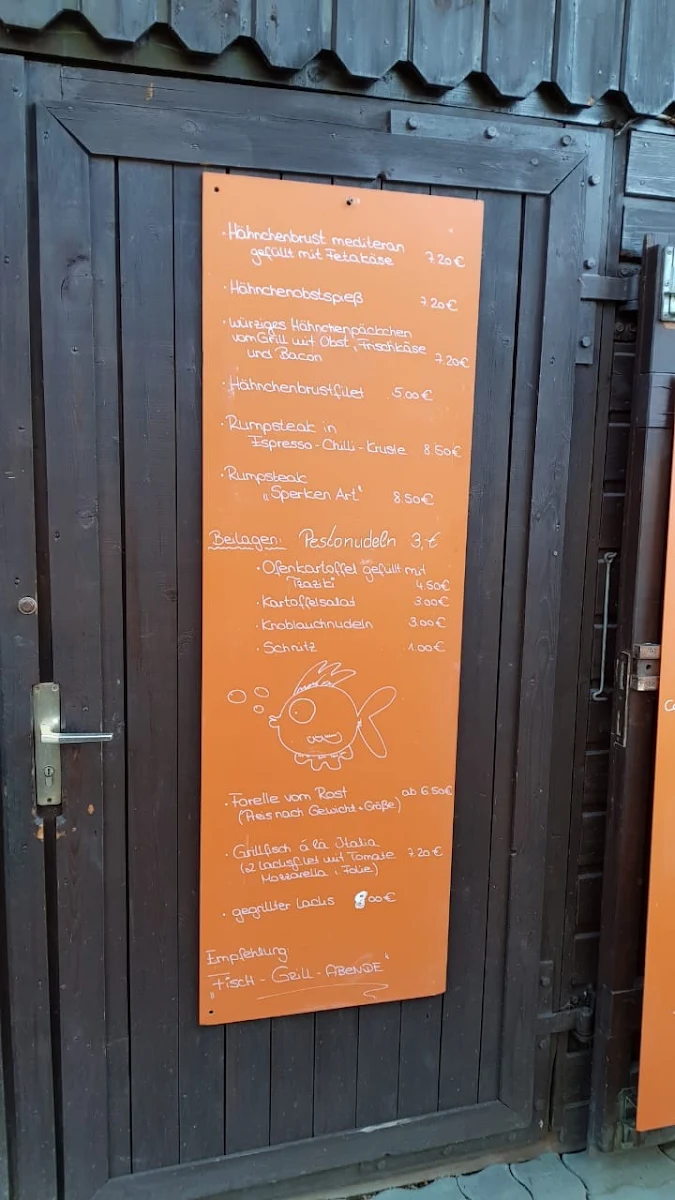 · Hähnchenbrust mediteran
gefüllt mit Fetakäse 7.20 €
· Hähnchenobstspieß 7.20 €
· würziges Hähnchenpäckchen
vom Grill mit Obst, Frischkäse
und Bacon 7.20 €
· Hähnchenbrustfilet 5.00 €
· Rumpsteak in
Espresso - Chilli - Kruste 8.50 €
· Rumpsteak
„Sperken Art" 8.50 €
Beilagen: Pestonudeln 3,- €
· Ofenkartoffel gefüllt mit
Tzaziki 4.50 €
· Kartoffelsalat 3.00 €
· Knoblauchnudeln 3.00 €
· Schnitz 1.00 €
· Forelle vom Rost ab 6.50 €
(Preis nach Gewicht + Größe)
· Grillfisch á lá Italia
(2 Lachsfilet mit Tomate 7.20 €
Mozzarella i. Folie)
· gegrillter Lachs 9.00 €
Empfehlung:
„Fisch - Grill - ABENDE"